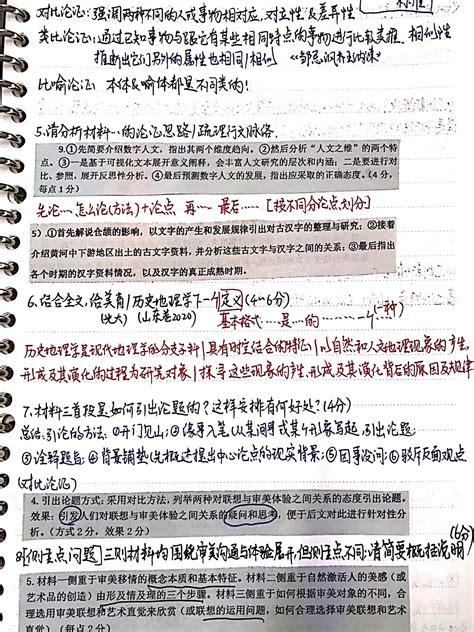 对比论证:强调两种不同的人或事物相对应,对立性&差异性
类比论证:通过已知事物与跟它有某些相同特点的事物进行比较类推.相似性
推断出它们另外的属性也相同/相似《邹忌讽齐王纳谏》
比喻论证:本体&喻体都是不同类的!
5.请分析材料…的论证思路/疏理行文脉络.
9.①先简要介绍数字人文,指出其两个维度趋向。②然后分析“人文之维”的两个特
点。③一是基于可视化文本展开意义阐释,会丰富人文研究的层次和内涵;二是要进行对
比、参照,展开反思性分析。④最后预测数字人文的发展,指出应采取的正确态度。(4分,
每点1分)
先论…怎么论(方法)+论点 再… 最后…[按不同分论点划分]
5).①首先解说仓颉的影响,以文字的产生和发展规律引出对古汉字的整理与研究;②接着
介绍黄河中下游地区出土的古文字资料,并分析这些古文字与汉字之间的关系;③最后指出
各个时期的汉字资料情况,以及汉字的真正成熟时期。
6.结合全文,给美育/历史地理学下一个定义(4~6分)
(山东卷2020)
基本格式…是…的………(一种)
历史地理学是现代地理学的分支学科/具有时空结合的特征/以自然和人文地理现象的产生,
形成及其演化的过程为研究对象/探寻这些现象的产生.形成及其演化背后的原因及规律
7.材料三首段是如何引出论题的?这样安排有何好处?(4分)
总结:引论的方法:①开门见山;②故事入笔(以某同事或某个故事写起,引出论题
③诠释题旨;④背景铺垫(先概述提出中心论点的现实背景;⑤因事设问;⑥驳斥反面观点
(对比论证)
4.引出论题方式:采用对比方法,列举两种对联想与审美体验之间关系的态度引出论题。
效果:引发人们对联想与审美体验之间关系的疑问和思考,便于后文对此进行针对性分
析。(方式2分,效果2分)
8.[侧重点问题]三则材料内围绕审美沟通与体验展开,但侧重点不同,请简要概括说明(6分)
5.材料一侧重于审美移情的概念本质和基本特征。材料二侧重于自然激活人的美感(或
艺术品的创造)由形及情及理的三个步骤。材料三侧重于如何根据审美对象的不同,合
理选用审美联想和艺术直觉来欣赏(或联想的运用问题,如何合理选择审美联想和艺术
直觉)(每点2分)